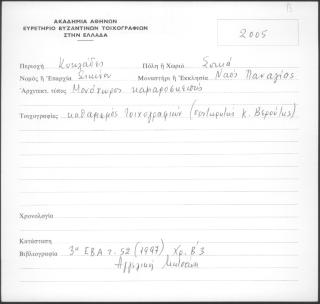 ΑΚΑΔΗΜΙΑ ΑΘΗΝΩΝ
ΕΥΡΕΤΗΡΙΟ ΒΥΖΑΝΤΙΝΩΝ ΤΟΙΧΟΓΡΑΦΙΩΝ
ΣΤΗΝ ΕΛΛΑΔΑ
2005
Περιοχή Κυκλάδες Πόλη ή Χωριό
Νομός ή Επαρχία Σικίνου Μοναστήρι ή Ἐκκλησία Ναός Παναγίας
Αρχιτεκτ. τύπος Μονόχωρος καμαροσκεπής
Τοιχογραφίες καθαρισμός τοιχογραφιών (συντηρητής Κ. Βερούτης)
Χρονολογία
Κατάσταση
Βιβλιογραφία 3η ΕΒΑ τ. 52 (1997) Χρ. Β'3
Αγγελική Μητσάνη